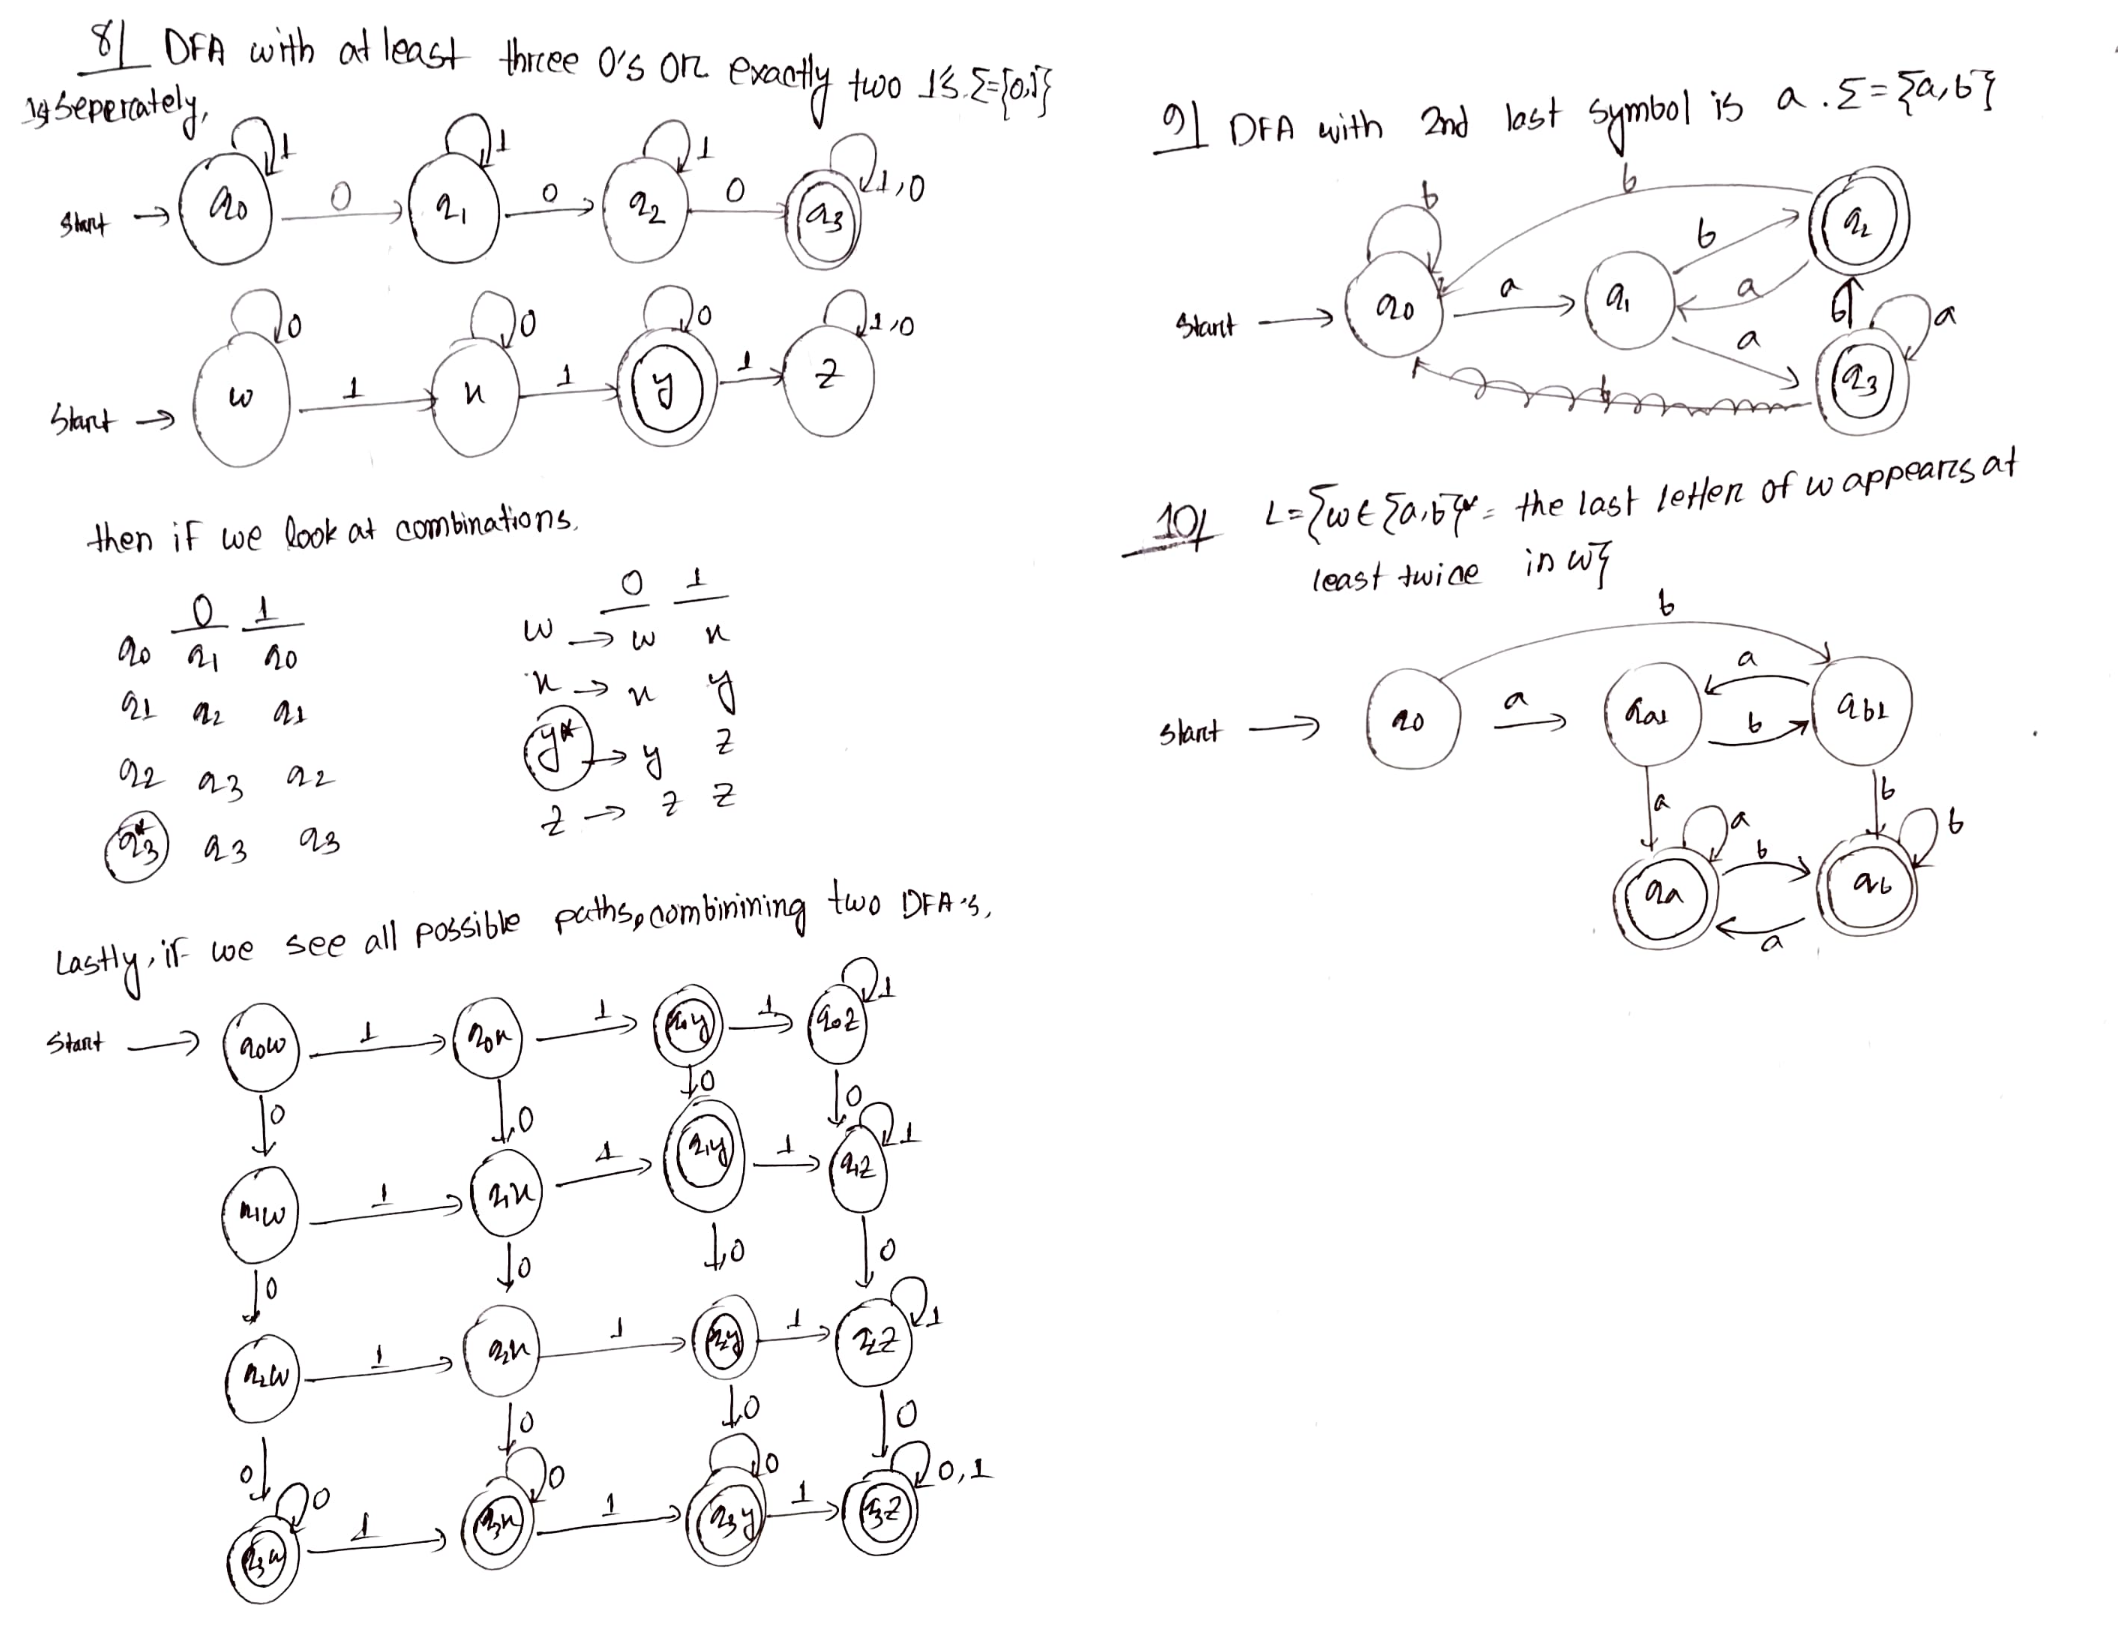 8| DFA with at least three 0's or exactly two 1's. Σ={0,1}
seperately,
1
1
1
1,0
Start → q0 0 q1 0 q2 0 q3
0
0
0
1,0
Start → w 1 x 1 y 1 z
then if we look at combinations.
0 1
q0 q1 q0
q1 q2 q1
q2 q3 q2
q3* q3 q3
0 1
w → w x
x → x y
y* → y z
z → z z
Lastly, if we see all possible paths, combinining two DFA's,
1
Start → q0w 1 q0x 1 q0y 1 q0z
0 0 0 0
1
q1w 1 q1x 1 q1y 1 q1z
0 0 0 0
1
q2w 1 q2x 1 q2y 1 q2z
0 0 0 0
0 0 0 0,1
q3w 1 q3x 1 q3y 1 q3z
9| DFA with 2nd last symbol is a. Σ={a,b}
b
b
q2
b
a
Start → q0 a q1
a
b
a
q3
b
10/ L={w∈{a,b}* = the last letter of w appears at
least twice in w}
b
a
Start → q0 a qa1 b qb1
a b
a b
qa b qb
a